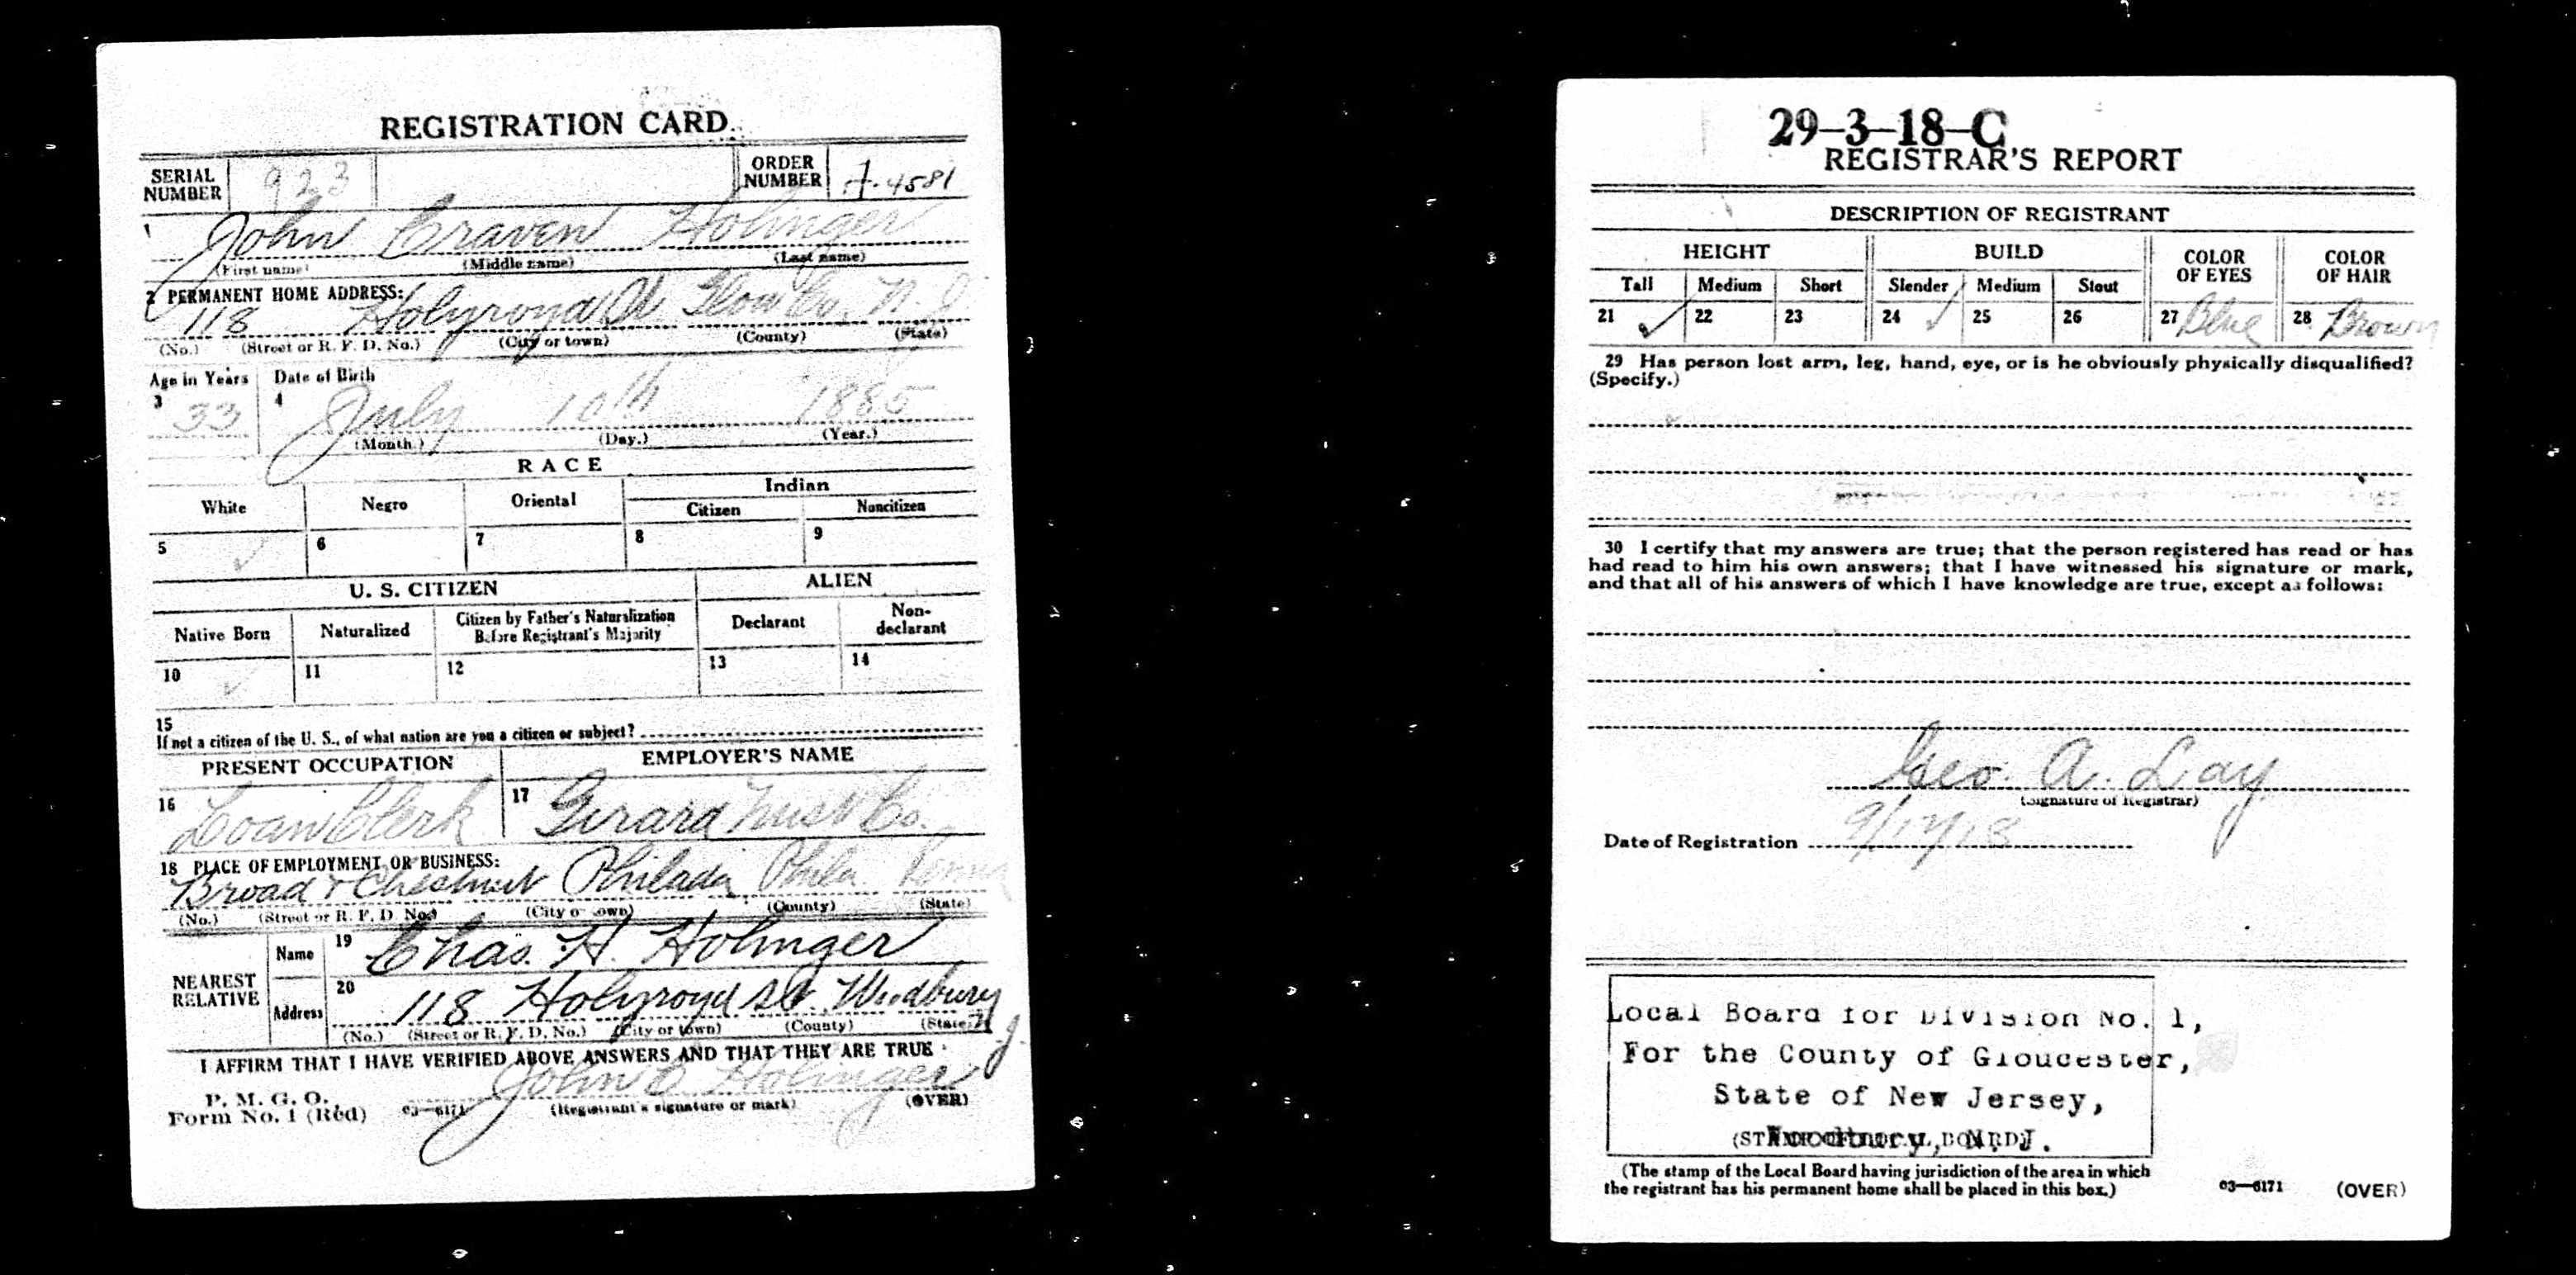 REGISTRATION CARD
SERIAL NUMBER 923 ORDER NUMBER A-4581
1 John Craven Holinger
(First name) (Middle name) (Last name)
2 PERMANENT HOME ADDRESS:
118 Holyroyd St. Glou Co. N. J
(No.) (Street or R. F. D. No.) (City or town) (County) (State)
Age in Years Date of Birth
3 33 4 July 10th 1885
(Month.) (Day.) (Year.)
RACE
White Negro Oriental Indian
Citizen Noncitizen
5 ✓ 6 7 8 9
U. S. CITIZEN ALIEN
Native Born Naturalized Citizen by Father's Naturalization Before Registrant's Majority Declarant Non-declarant
10 ✓ 11 12 13 14
15
If not a citizen of the U. S., of what nation are you a citizen or subject?
PRESENT OCCUPATION EMPLOYER'S NAME
16 Loan Clerk 17 Girard Trust Co.
18 PLACE OF EMPLOYMENT OR BUSINESS:
Broad & Chestnut Philada Phila Penna
(No.) (Street or R. F. D. No.) (City or town) (County) (State)
NEAREST RELATIVE
Name 19 Chas. H. Holinger
Address 20 118 Holyroyd St, Woodbury N. J.
(No.) (Street or R. F. D. No.) (City or town) (County) (State)
I AFFIRM THAT I HAVE VERIFIED ABOVE ANSWERS AND THAT THEY ARE TRUE
John C Holinger
P. M. G. O.
Form No. 1 (Red) 03—6171 (Registrant's signature or mark) (OVER)
29-3-18-C
REGISTRAR'S REPORT
DESCRIPTION OF REGISTRANT
HEIGHT BUILD COLOR OF EYES COLOR OF HAIR
Tall Medium Short Slender Medium Stout
21 ✓ 22 23 24 ✓ 25 26 27 Blue 28 Brown
29 Has person lost arm, leg, hand, eye, or is he obviously physically disqualified?
(Specify.)
30 I certify that my answers are true; that the person registered has read or has
had read to him his own answers; that I have witnessed his signature or mark,
and that all of his answers of which I have knowledge are true, except as follows:
Geo. A. Lay
(Signature of Registrar)
Date of Registration 9/12/18
Local Board for Division No. 1,
For the County of Gloucester,
State of New Jersey,
Woodbury, N. J.
(STAMP OF LOCAL BOARD)
(The stamp of the Local Board having jurisdiction of the area in which
the registrant has his permanent home shall be placed in this box.)
03—6171 (OVER)